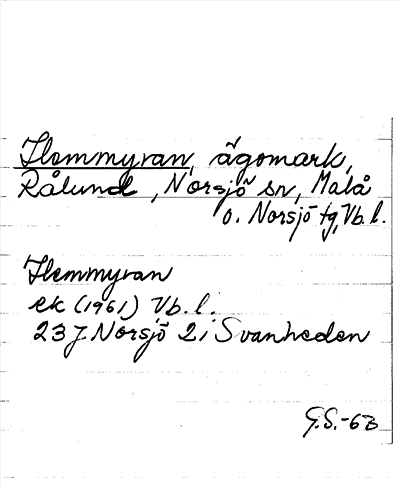 Hemmyran, ägomark,
Rålund, Norsjö sn, Malå
o. Norsjö tg, Vb. l.
Hemmyran
ek (1961) Vb. l.
23 J Norsjö 2 i Svanheden
G.S.-63